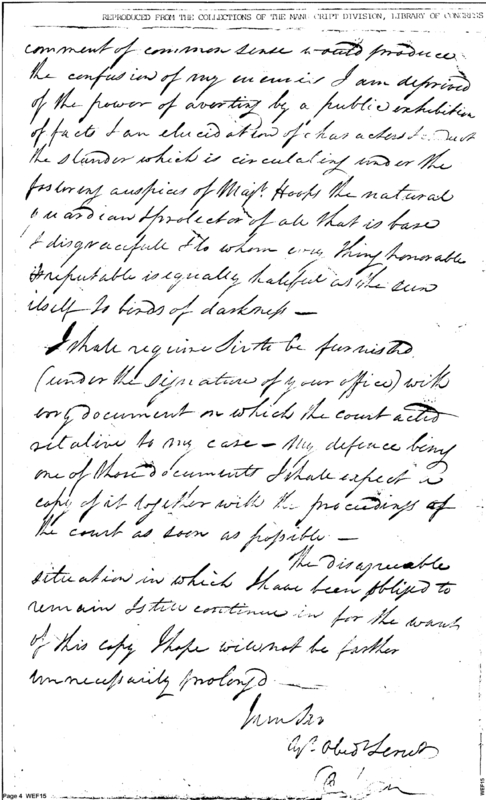 REPRODUCED FROM THE COLLECTIONS OF THE MANUSCRIPT DIVISION, LIBRARY OF CONGRESS
comment of common sense would produce
the confusion of my enemies I am deprived
of the power of averting by a public exhibition
of facts & an elucidation of characters & conduct
the slander which is circulating under the
fostering auspices of Majr. Hoops the natural
guardian & protector of all that is base
& disgracefull & to whom evry thing honorable
& reputable is equally hateful as the sun
itself to birds of darkness —
I shall require Sir to be furnished
(under the signature of your office) with
evry document on which the court acted
relative to my case — My defence being
one of those documents I shall expect a
copy of it together with the proceedings of
the court as soon as possible —
The disagreeable
situation in which I have been obliged to
remain & still continue in for the want
of this copy I hope will not be farther
unnecessarily prolong'd —
I am Sir
Yr. Obedt Servt
Page 4 WEF15
WEF15